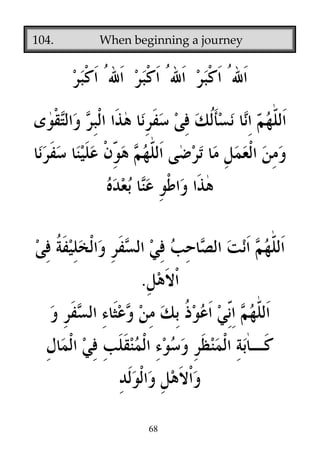 104. When beginning a journey
اَللهُ اَكْبَرْ اَللهُ اَكْبَرْ اَللهُ اَكْبَرْ
اَللّٰهُمَّ اِنَّا نَسْأَلُكَ فِىْ سَفَرِنَا هٰذَا الْبِرَّ وَالتَّقْوٰى
وَمِنَ الْعَمَلِ مَا تَرْضٰى اَللّٰهُمَّ هَوِّنْ عَلَيْنَا سَفَرَنَا
هٰذَا وَاطْوِ عَنَّا بُعْدَهُ
اَللّٰهُمَّ اَنْتَ الصَّاحِبُ فِيْ السَّفَرِ وَالْخَلِيْفَةُ فِىْ
الْاَهْلِ.
اَللّٰهُمَّ اِنِّيْ اَعُوْذُ بِكَ مِنْ وَّعْثَاءِ السَّفَرِ وَ
كَــاٰبَةِ الْمَنْظَرِ وَسُوْءِ الْمُنْقَلَبِ فِيْ الْمَالِ
وَالْاَهْلِ وَالْوَلَدِ
68